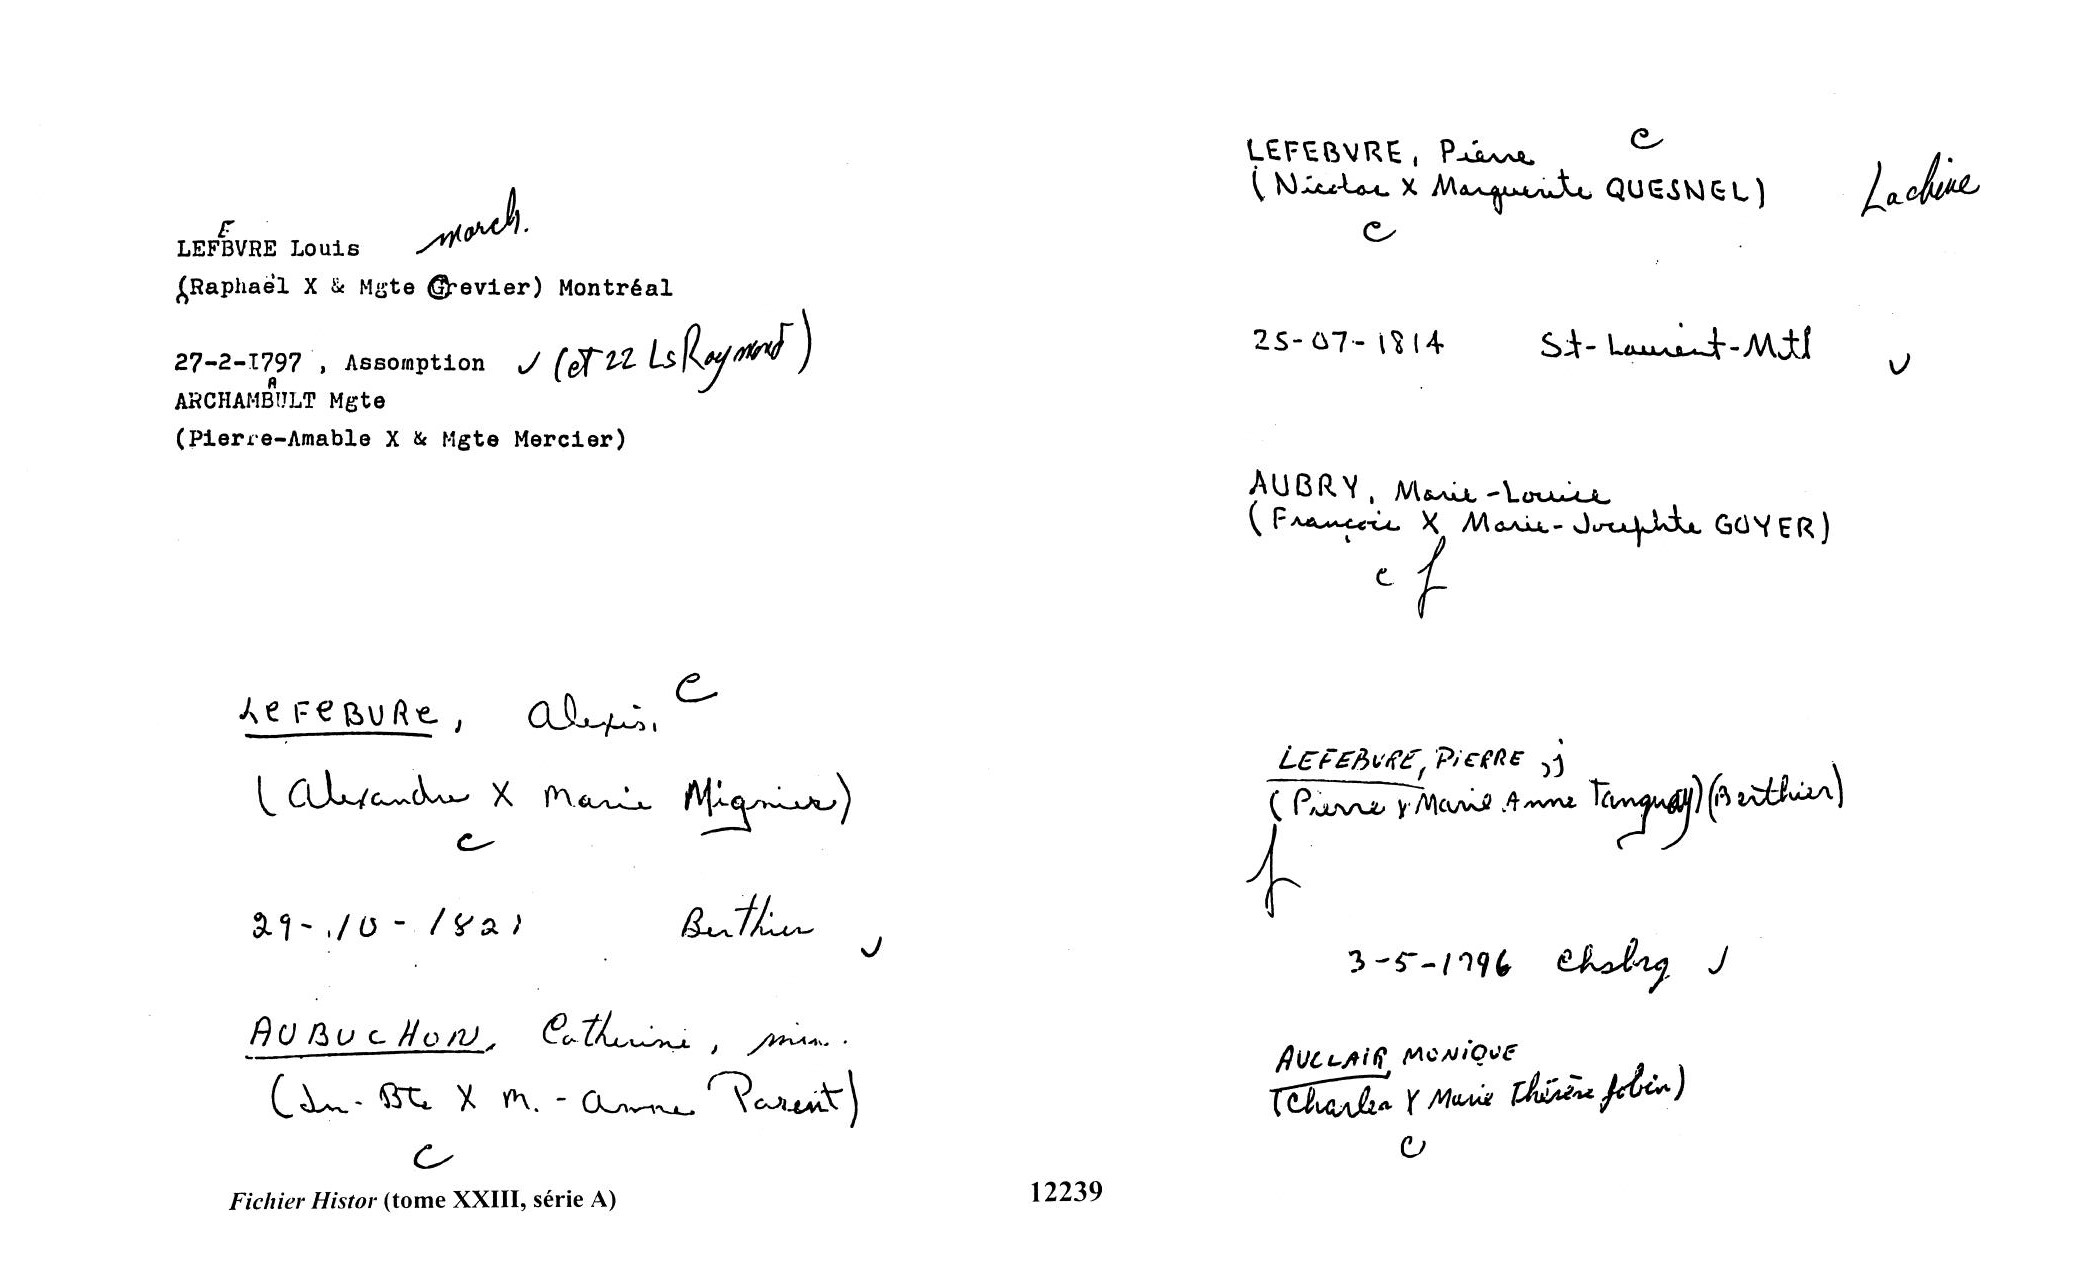 LEFEBVRE Louis march.
(Raphaël X & Mgte Grevier) Montréal
27-2-1797 , Assomption (et 22 Ls Raymond)
ARCHAMBAULT Mgte
(Pierre-Amable X & Mgte Mercier)
LEFEBVRE, Alexis, C
(Alexandre X Marie Mignier)
C
29-10-1821 Berthier
AUBUCHON, Catherine, min.
(Jn-Bte X M.-Anne Parent)
C
LEFEBVRE, Pierre C
(Nicolas X Marguerite QUESNEL) Lachine
C
25-07-1814 St-Laurent-Mtl
AUBRY, Marie-Louise
(François X Marie-Josephte GOYER)
c f
LEFEBVRE, PIERRE, j
(Pierre X Marie Anne Tanguay) (Berthier)
f
3-5-1796 Chsbrg
AUCLAIR, MONIQUE
(Charles X Marie Thérèse Jobin)
C
Fichier Histor (tome XXIII, série A) 12239